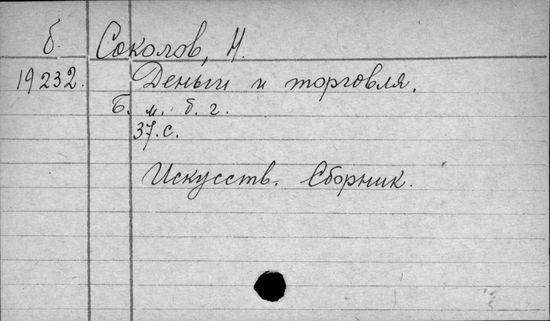 б. Соколов, Н.
19232. Деньги и торговля.
Б. м. б. г.
37.с.
Искусств. Сборник.